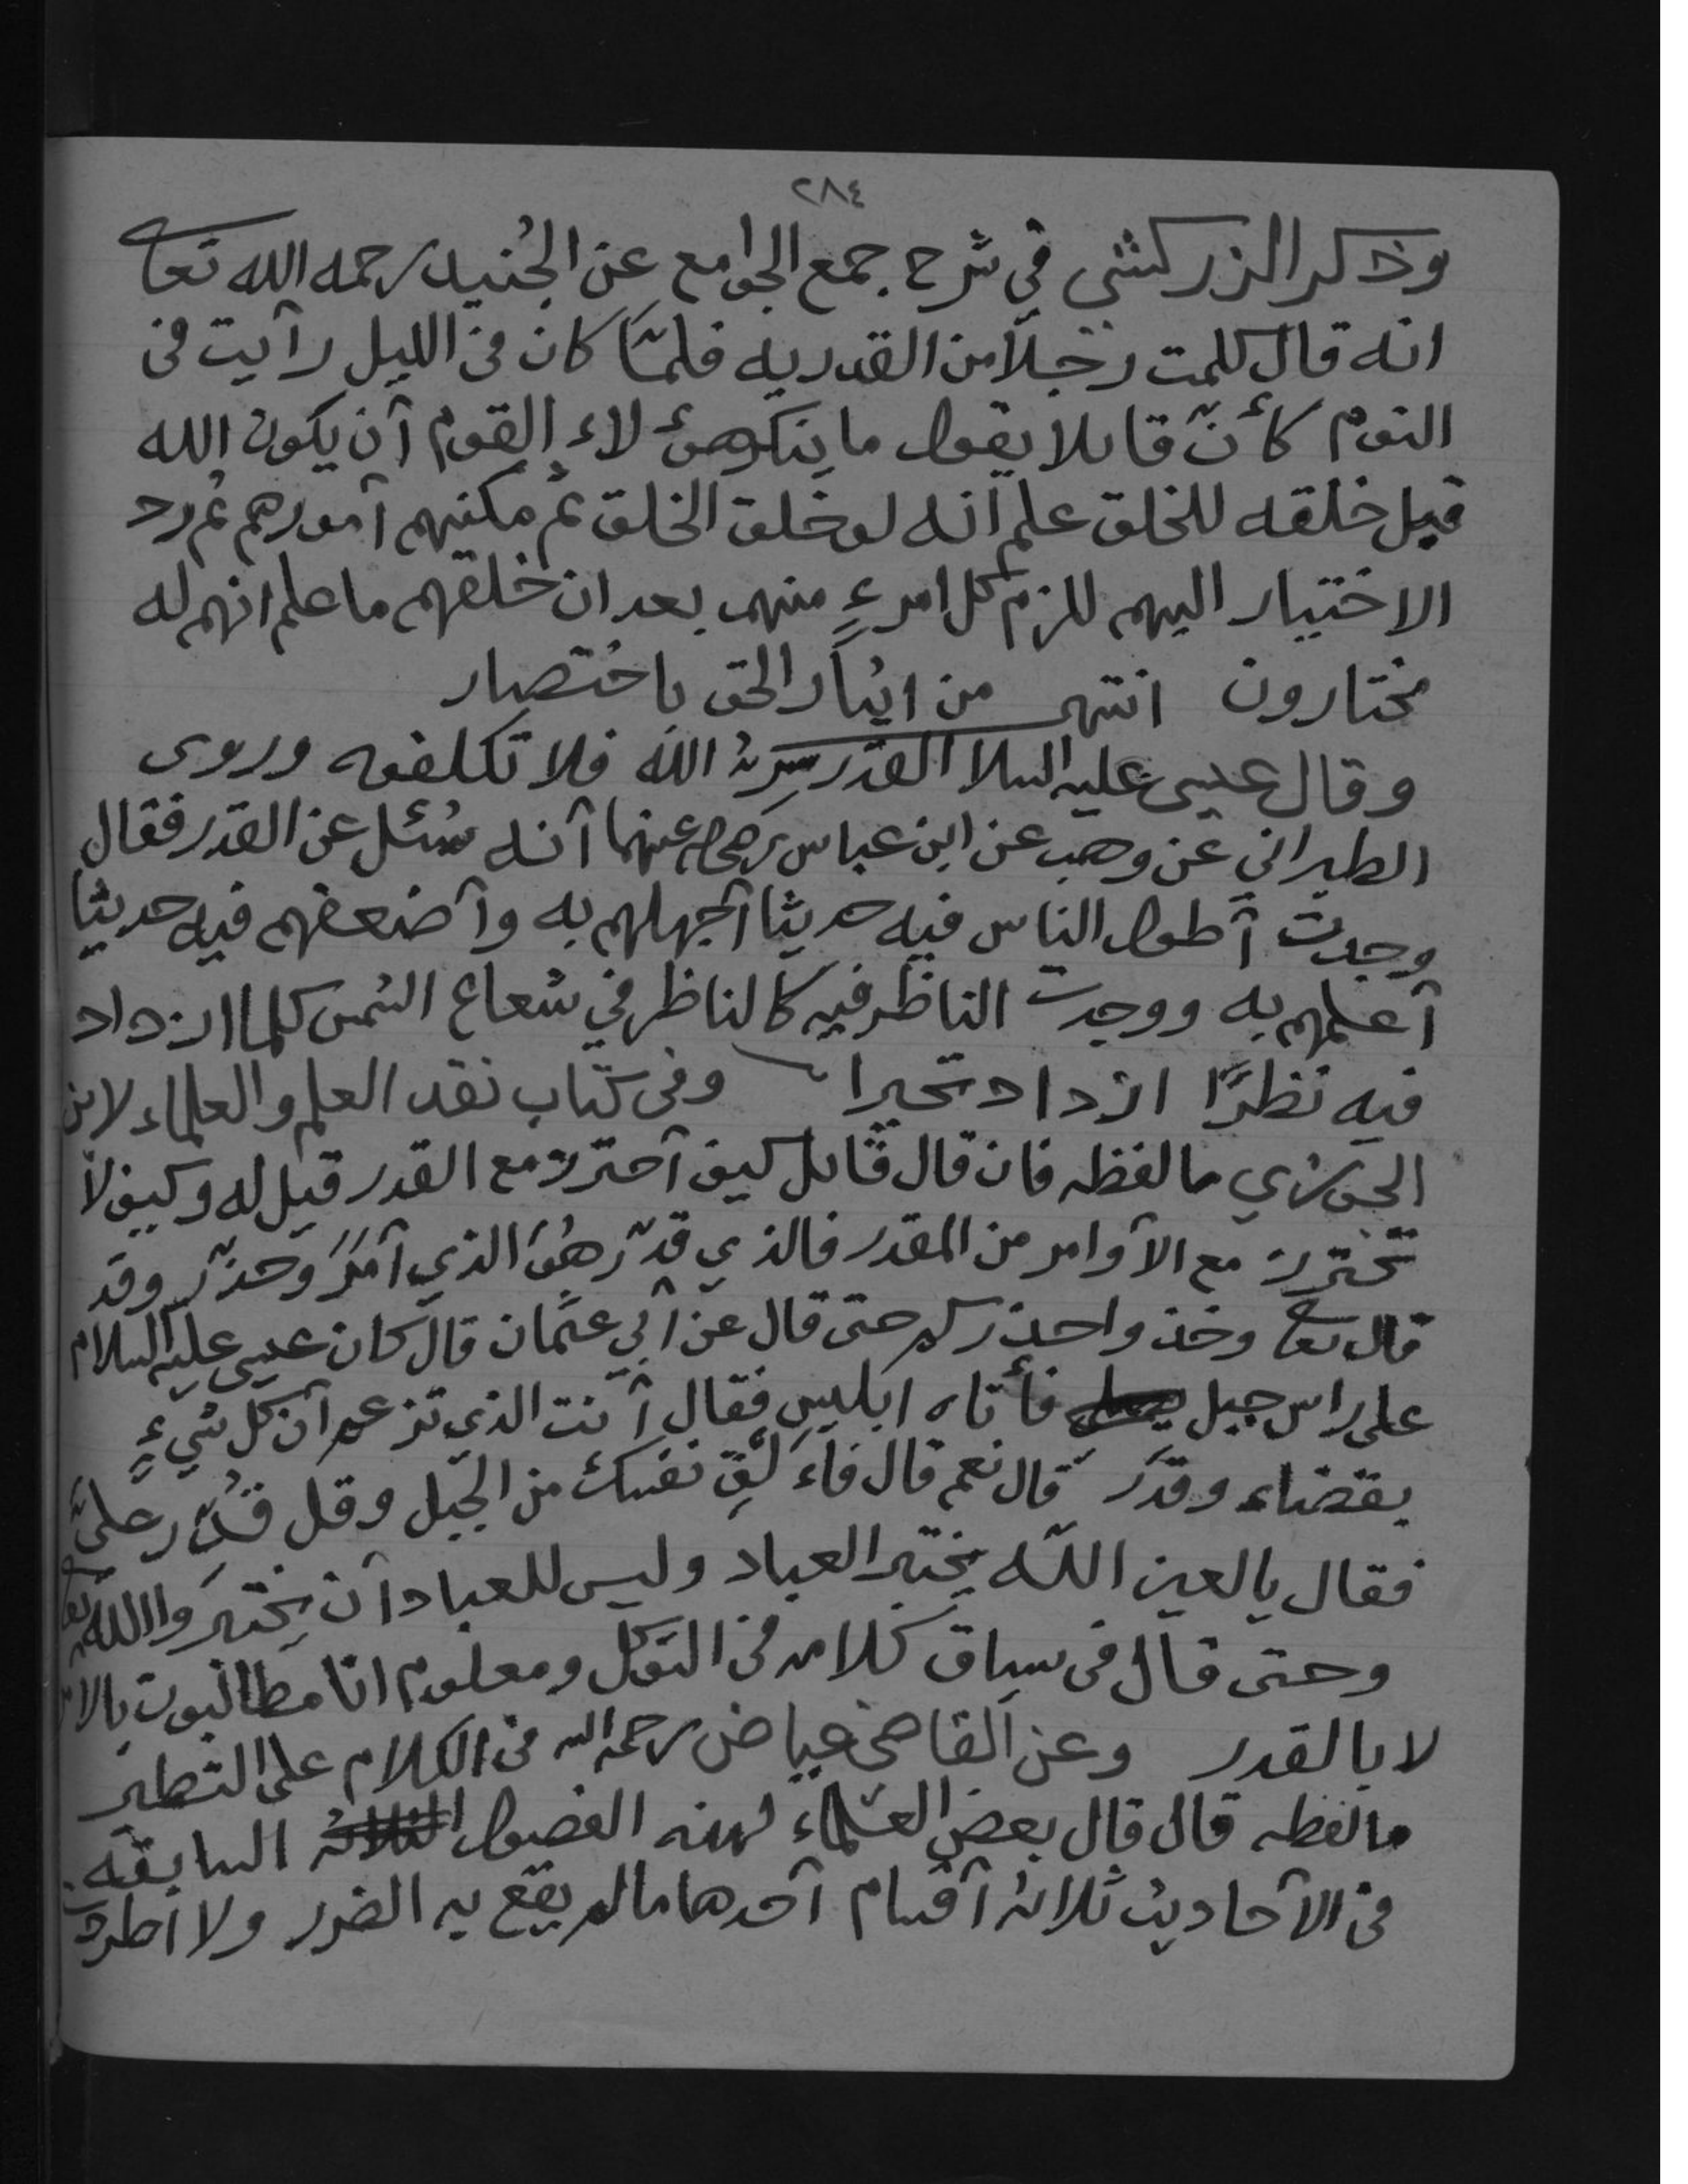 ٢٨٤
وذكر الزركشي في شرح جمع الجوامع عن الجُنيد رحمه الله تعا
انه قال كلمت رجلاً من القدريه فلمّا كان في الليل رآيت في
النوم كأنّ قائلا يقول ما ينكر هؤلاء القوم آن يكون الله
قبل خلقه للخلق علم آنه لو خلق الخلق ثم مكنهم آمورهم ثم رد
الاختيار اليهم للزم كل امرءٍ منهم بعد ان خلقهم ما علم انهم له
مختارون انتهى من ايثار الحق باختصار
وقال عيسى عليه السلا القدر سِرُّ الله فلا تكلفوه وروى
الطبراني عن وهب عن ابن عباس رضي الله عنهما آنه سُئل عن القدر فقال
وجدت آطول الناس فيه حديثا آجهلهم به وآضعفهم فيه حديثا
آعلمهم به ووجدت الناظر فيه كالناظر في شعاع الشمس كلما ازداد
فيه نظرًا ازداد تحيرا وفي كتاب نقد العلم والعلماء لابن
الجوزي ما لفظه فان قال قائل كيف آحترز مع القدر قيل له وكيف لا
تحترز مع الآوامر من المقدر فالذي قدّر هُوَ الذي آمَرَ وحذّر وقد
قال تعا وخذوا حذركم حتى قال عن آبي عثمان قال كان عيسى عليه السلام
على راس جبل فأتاه ابليس فقال آنت الذي تزعم آن كل شيءٍ
بقضاء وقدَر قال نعم قال فاءَلقِ نفسك من الجبل وقل قُدِّر علىَّ
فقال يا لعين اللّه يختبر العباد وليس للعباد آن يختبرَوا الله تعا
وحتى قال في سياق كلامه في التوكل ومعلوم انا مطالبون بالا
لا بالقدر وعن القاضي عياض رحمه الله في الكلام على التطير
ما لفظه قال قال بعض العلماء لهذه الفصول السابقه
في الآحاديث ثلاثة آقسام آحدها ما لم يقع به الضرر ولا اطردت